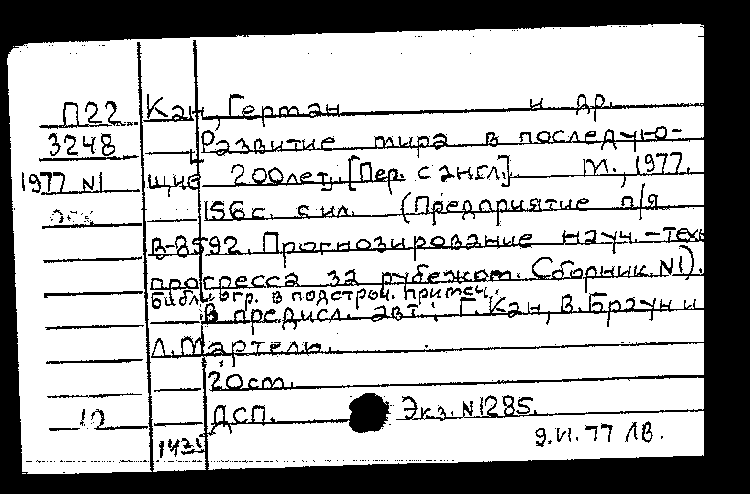 П22 Кан, Герман и др.
3248 Развитие мира в последую-
1977 N1 щие 200лет. [Пер. с англ.] М., 1977.
156с. с ил. (Предприятие п/я
В-8592. Прогнозирование науч.-техн
прогресса за рубежом. Сборник N1).
библиогр. в подстроч. примеч.
В предисл. авт.: Г. Кан, В. Браун и
Л. Мартель.
20см.
10 ДСП. Экз. N1285.
9.VI.77 ЛВ.